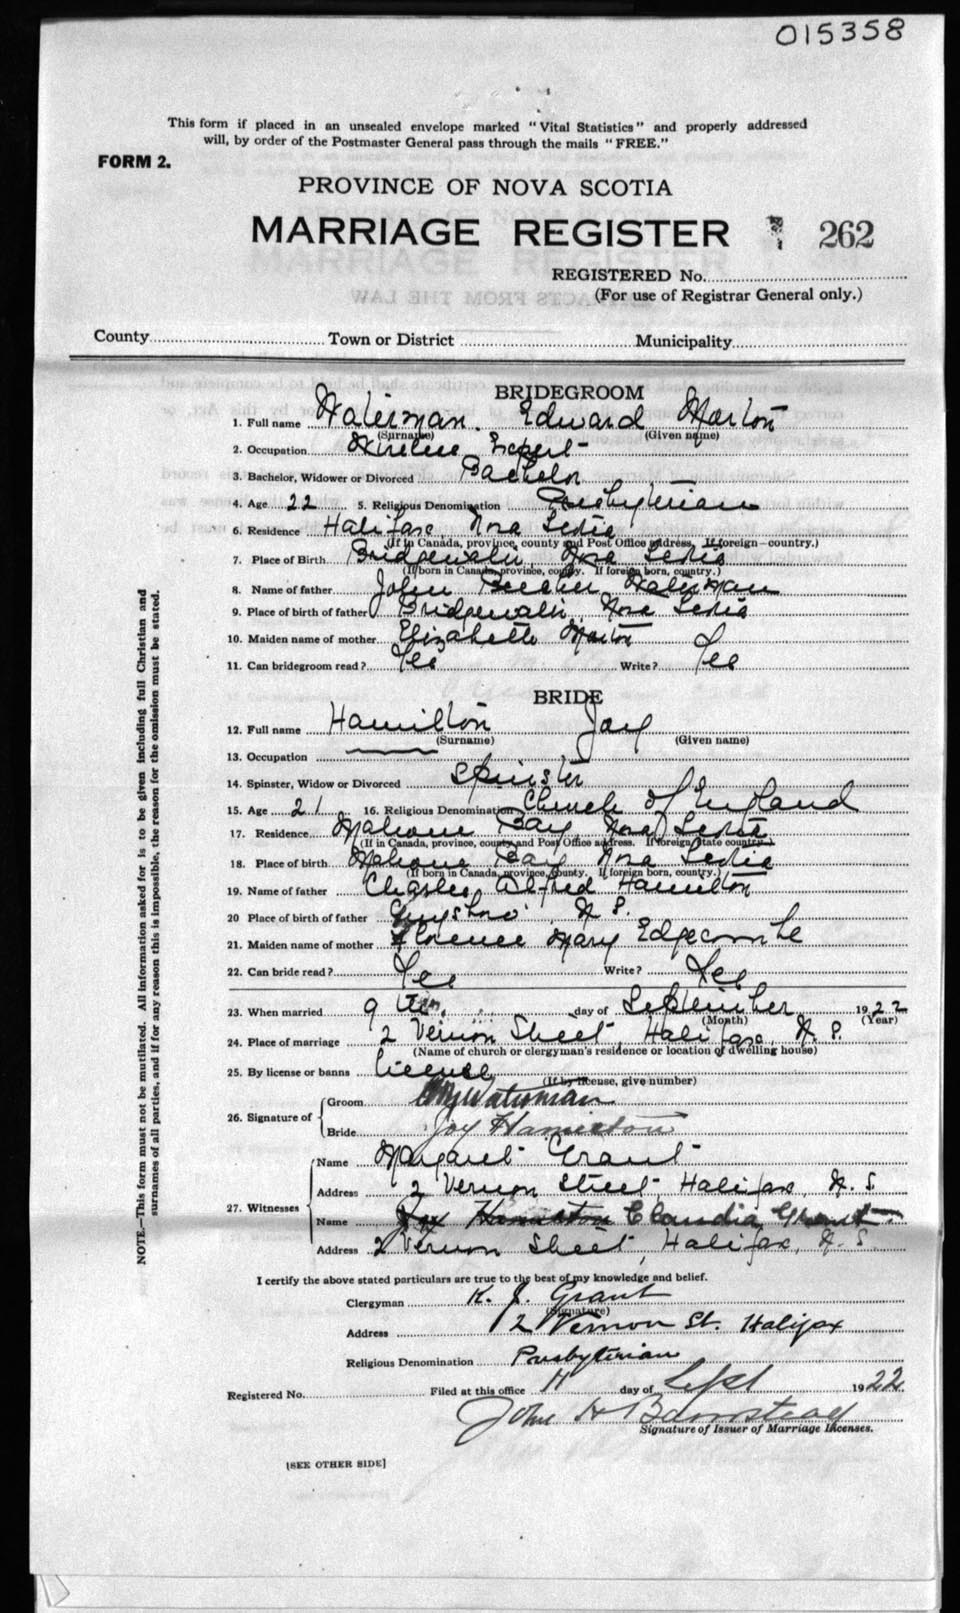 015358
This form if placed in an unsealed envelope marked "Vital Statistics" and properly addressed
will, by order of the Postmaster General pass through the mails "FREE."
FORM 2.
PROVINCE OF NOVA SCOTIA
MARRIAGE REGISTER 262
REGISTERED No.
(For use of Registrar General only.)
County Town or District Municipality
BRIDEGROOM
1. Full name Waterman. Edward Marton
(Surname) (Given name)
2. Occupation Wireless Expert
3. Bachelor, Widower or Divorced Bachelor
4. Age 22 5. Religious Denomination Presbyterian
6. Residence Halifax Nova Scotia
(If in Canada, province, county and Post Office address. If foreign—country.)
7. Place of Birth Bridgewater Nova Scotia
(If born in Canada, province, county. If foreign born, country.)
8. Name of father John Beecher Waterman
9. Place of birth of father Bridgewater, Nova Scotia
10. Maiden name of mother Elizabeth Marton
11. Can bridegroom read? Yes Write? Yes
BRIDE
12. Full name Hamilton Joy
(Surname) (Given name)
13. Occupation
14. Spinster, Widow or Divorced Spinster
15. Age 21 16. Religious Denomination Church of England
17. Residence Mahone Bay, Nova Scotia
(If in Canada, province, county and Post Office address. If foreign state country.)
18. Place of birth Mahone Bay Nova Scotia
(If born in Canada, province, county. If foreign born, country.)
19. Name of father Charles Alfred Hamilton
20 Place of birth of father Guysboro' N.S.
21. Maiden name of mother Florence Mary Edgecombe
22. Can bride read? Yes Write? Yes
23. When married 9th day of September 1922
(Month) (Year)
24. Place of marriage 2 Vernon Street, Halifax, N.S.
(Name of church or clergyman's residence or location of dwelling house)
25. By license or banns License
(If by license, give number)
26. Signature of Groom Waterman
Bride Joy Hamilton
27. Witnesses Name Margaret Grant
Address 2 Vernon Street, Halifax, N.S.
Name Joy Hamilton Claudia Grant
Address 2 Vernon Street, Halifax, N.S.
I certify the above stated particulars are true to the best of my knowledge and belief.
Clergyman K. J. Grant
(Signature)
Address 2 Vernon St. Halifax
Religious Denomination Presbyterian
Registered No. Filed at this office 11 day of Sept 1922
John H Barnstead
Signature of Issuer of Marriage Licenses.
[SEE OTHER SIDE]
NOTE.—This form must not be mutilated. All information asked for is to be given including full Christian and
surnames of all parties, and if for any reason this is impossible, the reason for the omission must be stated.